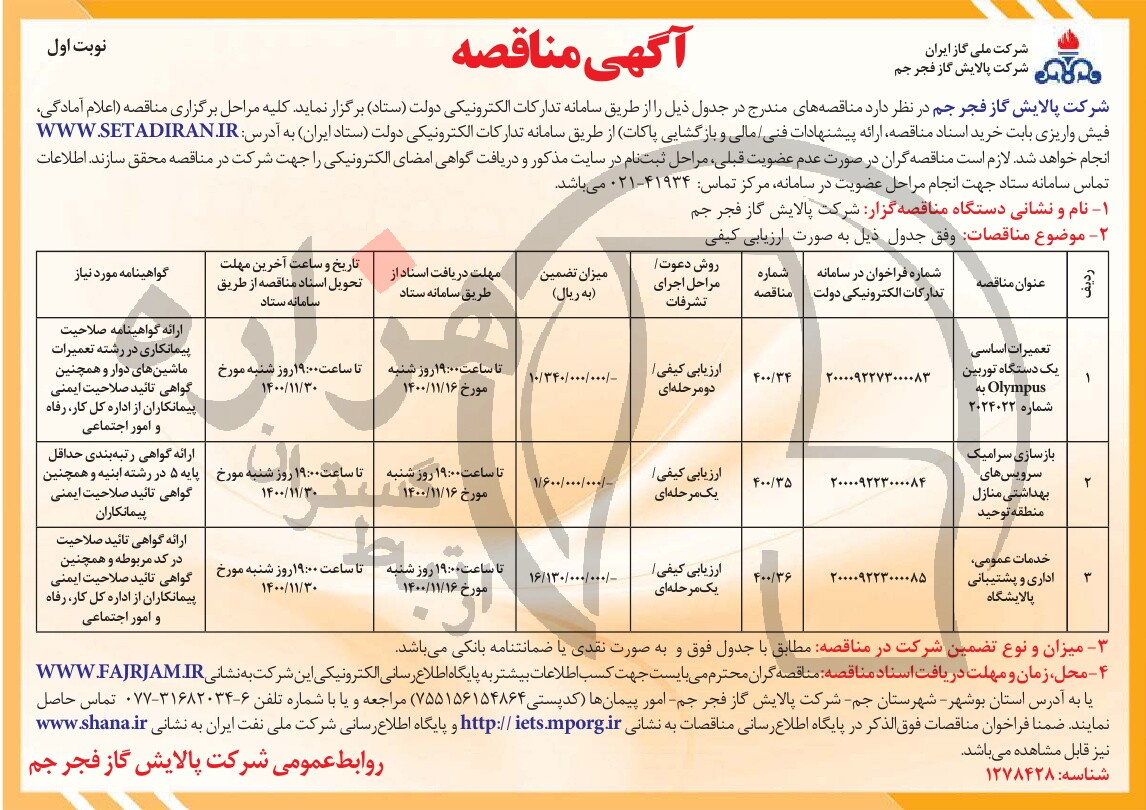 شرکت ملی گاز ایران
شرکت پالایش گاز فجر جم
آگهی مناقصه
نوبت اول
شرکت پالایش گاز فجر جم در نظر دارد مناقصه‌های مندرج در جدول ذیل را از طریق سامانه تدارکات الکترونیکی دولت (ستاد) برگزار نماید. کلیه مراحل برگزاری مناقصه (اعلام آمادگی،
فیش واریزی بابت خرید اسناد مناقصه، ارائه پیشنهادات فنی/مالی و بازگشایی پاکات) از طریق سامانه تدارکات الکترونیکی دولت (ستاد ایران) به آدرس: WWW.SETADIRAN.IR
انجام خواهد شد. لازم است مناقصه‌گران در صورت عدم عضویت قبلی، مراحل ثبت‌نام در سایت مذکور و دریافت گواهی امضای الکترونیکی را جهت شرکت در مناقصه محقق سازند. اطلاعات
تماس سامانه ستاد جهت انجام مراحل عضویت در سامانه، مرکز تماس: ۴۱۹۳۴-۰۲۱ می‌باشد.
۱- نام و نشانی دستگاه مناقصه‌گزار: شرکت پالایش گاز فجر جم
۲- موضوع مناقصات: وفق جدول ذیل به صورت ارزیابی کیفی
ردیف
عنوان مناقصه
شماره فراخوان در سامانه
تدارکات الکترونیکی دولت
شماره
مناقصه
روش دعوت/
مراحل اجرای
تشرفات
میزان تضمین
(به ریال)
مهلت دریافت اسناد از
طریق سامانه ستاد
تاریخ و ساعت آخرین مهلت
تحویل اسناد مناقصه از طریق
سامانه ستاد
گواهینامه مورد نیاز
۱
تعمیرات اساسی
یک دستگاه توربین
Olympus به
شماره ۲۰۲۴۰۲۲
۲۰۰۰۰۹۲۲۷۳۰۰۰۰۸۳
۴۰۰/۳۴
ارزیابی کیفی/
دومرحله‌ای
۱۰/۳۴۰/۰۰۰/۰۰۰/-
تا ساعت ۱۹:۰۰روز شنبه
مورخ ۱۴۰۰/۱۱/۱۶
تا ساعت ۱۹:۰۰روز شنبه مورخ
۱۴۰۰/۱۱/۳۰
ارائه گواهینامه صلاحیت
پیمانکاری در رشته تعمیرات
ماشین‌های دوار و همچنین
گواهی تائید صلاحیت ایمنی
پیمانکاران از اداره کل کار، رفاه
و امور اجتماعی
۲
بازسازی سرامیک
سرویس‌های
بهداشتی منازل
منطقه توحید
۲۰۰۰۰۹۲۲۳۰۰۰۰۸۴
۴۰۰/۳۵
ارزیابی کیفی/
یک‌مرحله‌ای
۱/۶۰۰/۰۰۰/۰۰۰/-
تا ساعت ۱۹:۰۰ روز شنبه
مورخ ۱۴۰۰/۱۱/۱۶
تا ساعت ۱۹:۰۰ روز شنبه مورخ
۱۴۰۰/۱۱/۳۰
ارائه گواهی رتبه‌بندی حداقل
پایه ۵ در رشته ابنیه و همچنین
گواهی تائید صلاحیت ایمنی
پیمانکاران
۳
خدمات عمومی،
اداری و پشتیبانی
پالایشگاه
۲۰۰۰۰۹۲۲۳۰۰۰۰۸۵
۴۰۰/۳۶
ارزیابی کیفی/
یک‌مرحله‌ای
۱۶/۱۳۰/۰۰۰/۰۰۰/-
تا ساعت ۱۹:۰۰ روز شنبه
مورخ ۱۴۰۰/۱۱/۱۶
تا ساعت ۱۹:۰۰روز شنبه مورخ
۱۴۰۰/۱۱/۳۰
ارائه گواهی تائید صلاحیت
در کد مربوطه و همچنین
گواهی تائید صلاحیت ایمنی
پیمانکاران از اداره کل کار، رفاه
و امور اجتماعی
۳- میزان و نوع تضمین شرکت در مناقصه: مطابق با جدول فوق و به صورت نقدی یا ضمانتنامه بانکی می‌باشد.
۴- محل، زمان و مهلت دریافت اسناد مناقصه: مناقصه گران محترم می‌بایست جهت کسب اطلاعات بیشتر به پایگاه اطلاع رسانی الکترونیکی این شرکت به نشانی WWW.FAJRJAM.IR
یا به آدرس استان بوشهر- شهرستان جم- شرکت پالایش گاز فجر جم- امور پیمان‌ها (کدپستی ۷۵۵۱۵۶۱۵۴۸۶۴) مراجعه و یا با شماره تلفن ۶-۳۱۶۸۲۰۳۴-۰۷۷ تماس حاصل
نمایند. ضمنا فراخوان مناقصات فوق‌الذکر در پایگاه اطلاع‌رسانی مناقصات به نشانی http:// iets.mporg.ir و پایگاه اطلاع‌رسانی شرکت ملی نفت ایران به نشانی www.shana.ir
نیز قابل مشاهده می‌باشد.
شناسه: ۱۲۷۸۴۲۸
روابط‌عمومی شرکت پالایش گاز فجر جم
هزاره
ارتباط گستران